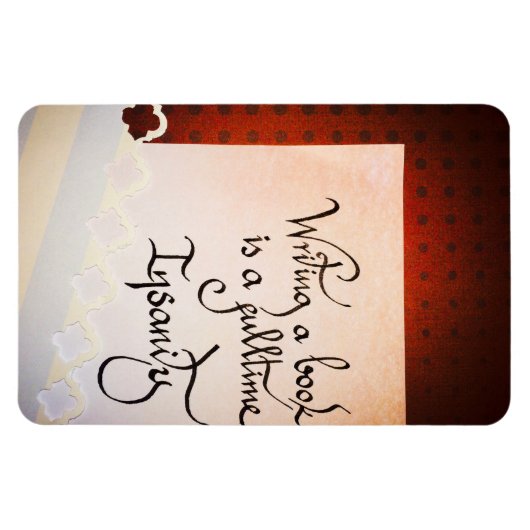 Writing a book
is a fulltime
Insanity